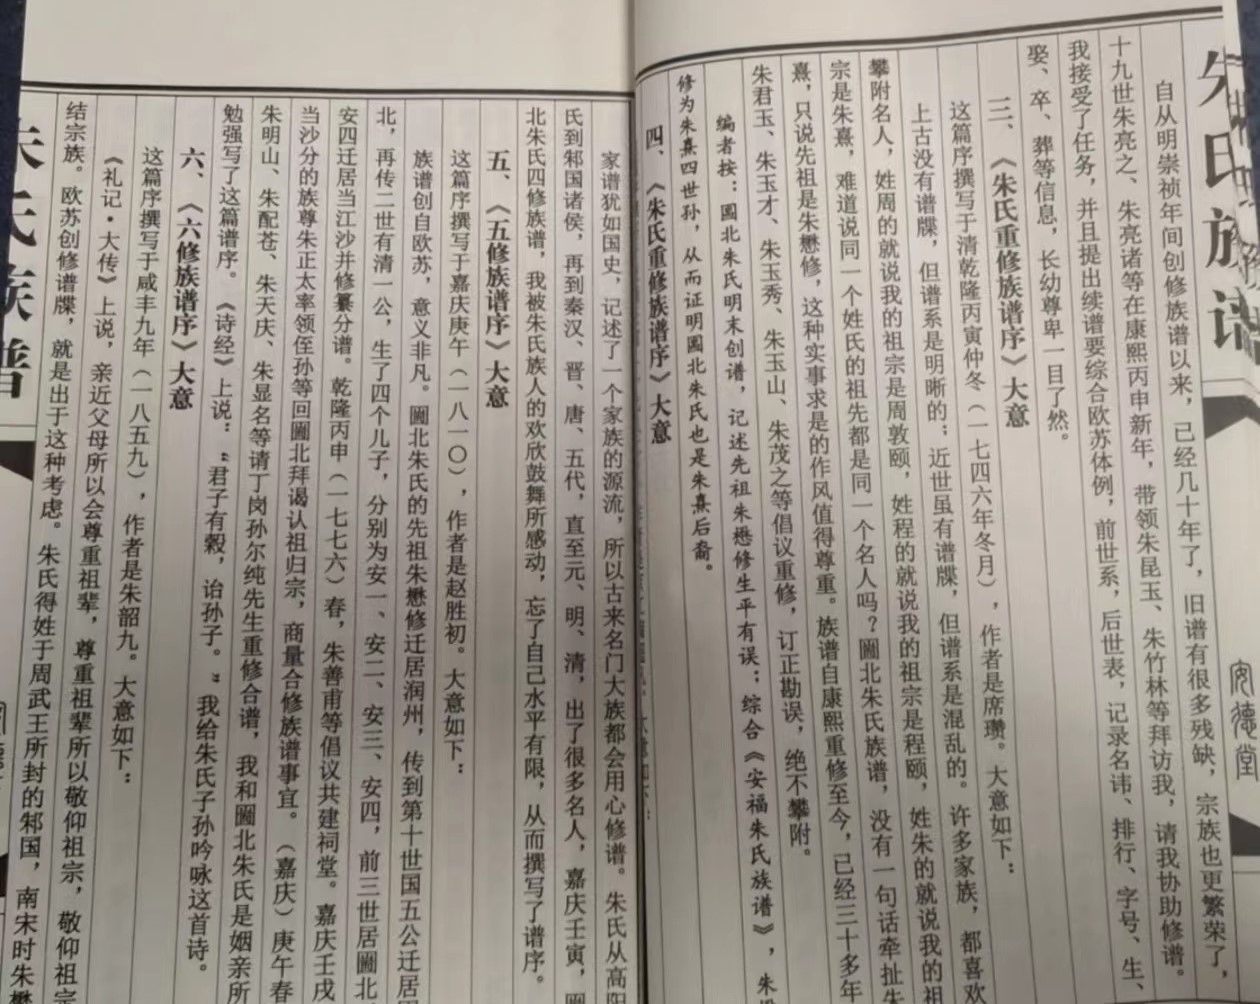 朱氏族谱
安德堂
自从明崇祯年间创修族谱以来，已经几十年了，旧谱有很多残缺，宗族也更繁荣了，
十九世朱亮之、朱亮诸等在康熙丙申新年，带领朱昆玉、朱竹林等拜访我，请我协助修谱。
我接受了任务，并且提出续谱要综合欧苏体例，前世系，后世表，记录名讳、排行、字号、生、
娶、卒、葬等信息，长幼尊卑一目了然。
三、《朱氏重修族谱序》大意
这篇序撰写于清乾隆丙寅仲冬（一七四六年冬月），作者是席瓒。大意如下：
上古没有谱牒，但谱系是明晰的；近世虽有谱牒，但谱系是混乱的。许多家族，都喜欢
攀附名人，姓周的就说我的祖宗是周敦颐，姓程的就说我的祖宗是程颐，姓朱的就说我的祖
宗是朱熹，难道说同一个姓氏的祖先都是同一个名人吗？圌北朱氏族谱，没有一句话牵扯朱
熹，只说先祖是朱懋修，这种实事求是的作风值得尊重。族谱自康熙重修至今，已经三十多年
朱君玉、朱玉才、朱玉秀、朱玉山、朱茂之等倡议重修，订正勘误，绝不攀附。
编者按：圌北朱氏明末创谱，记述先祖朱懋修生平有误；综合《安福朱氏族谱》，朱懋
修为朱熹四世孙，从而证明圌北朱氏也是朱熹后裔。
四、《朱氏重修族谱序》大意
家谱犹如国史，记述了一个家族的源流，所以古来名门大族都会用心修谱。朱氏从高阳
氏到邾国诸侯，再到秦汉、晋、唐、五代，直至元、明、清，出了很多名人，嘉庆壬寅，圌
北朱氏四修族谱，我被朱氏族人的欢欣鼓舞所感动，忘了自己水平有限，从而撰写了谱序。
五、《五修族谱序》大意
这篇序撰写于嘉庆庚午（一八一〇），作者是赵胜初。大意如下：
族谱创自欧苏，意义非凡。圌北朱氏的先祖朱懋修迁居润州，传到第十世国五公迁居圌
北，再传二世有清一公，生了四个儿子，分别为安一、安二、安三、安四，前三世居圌北
安四迁居当江沙并修纂分谱。乾隆丙申（一七七六）春，朱善甫等倡议共建祠堂。嘉庆壬戌
当沙分的族尊朱正太率领侄孙等回圌北拜谒认祖归宗，商量合修族谱事宜。（嘉庆）庚午春
朱明山、朱配苍、朱天庆、朱显名等请丁岗孙尔纯先生重修合谱，我和圌北朱氏是姻亲所
勉强写了这篇谱序。《诗经》上说：“君子有榖，诒孙子。”我给朱氏子孙吟咏这首诗。
六、《六修族谱序》大意
这篇序撰写于咸丰九年（一八五九），作者是朱韶九。大意如下：
《礼记·大传》上说，亲近父母所以会尊重祖辈，尊重祖辈所以敬仰祖宗，敬仰祖宗
结宗族。欧苏创修谱牒，就是出于这种考虑。朱氏得姓于周武王所封的邾国，南宋时朱懋
朱氏族谱